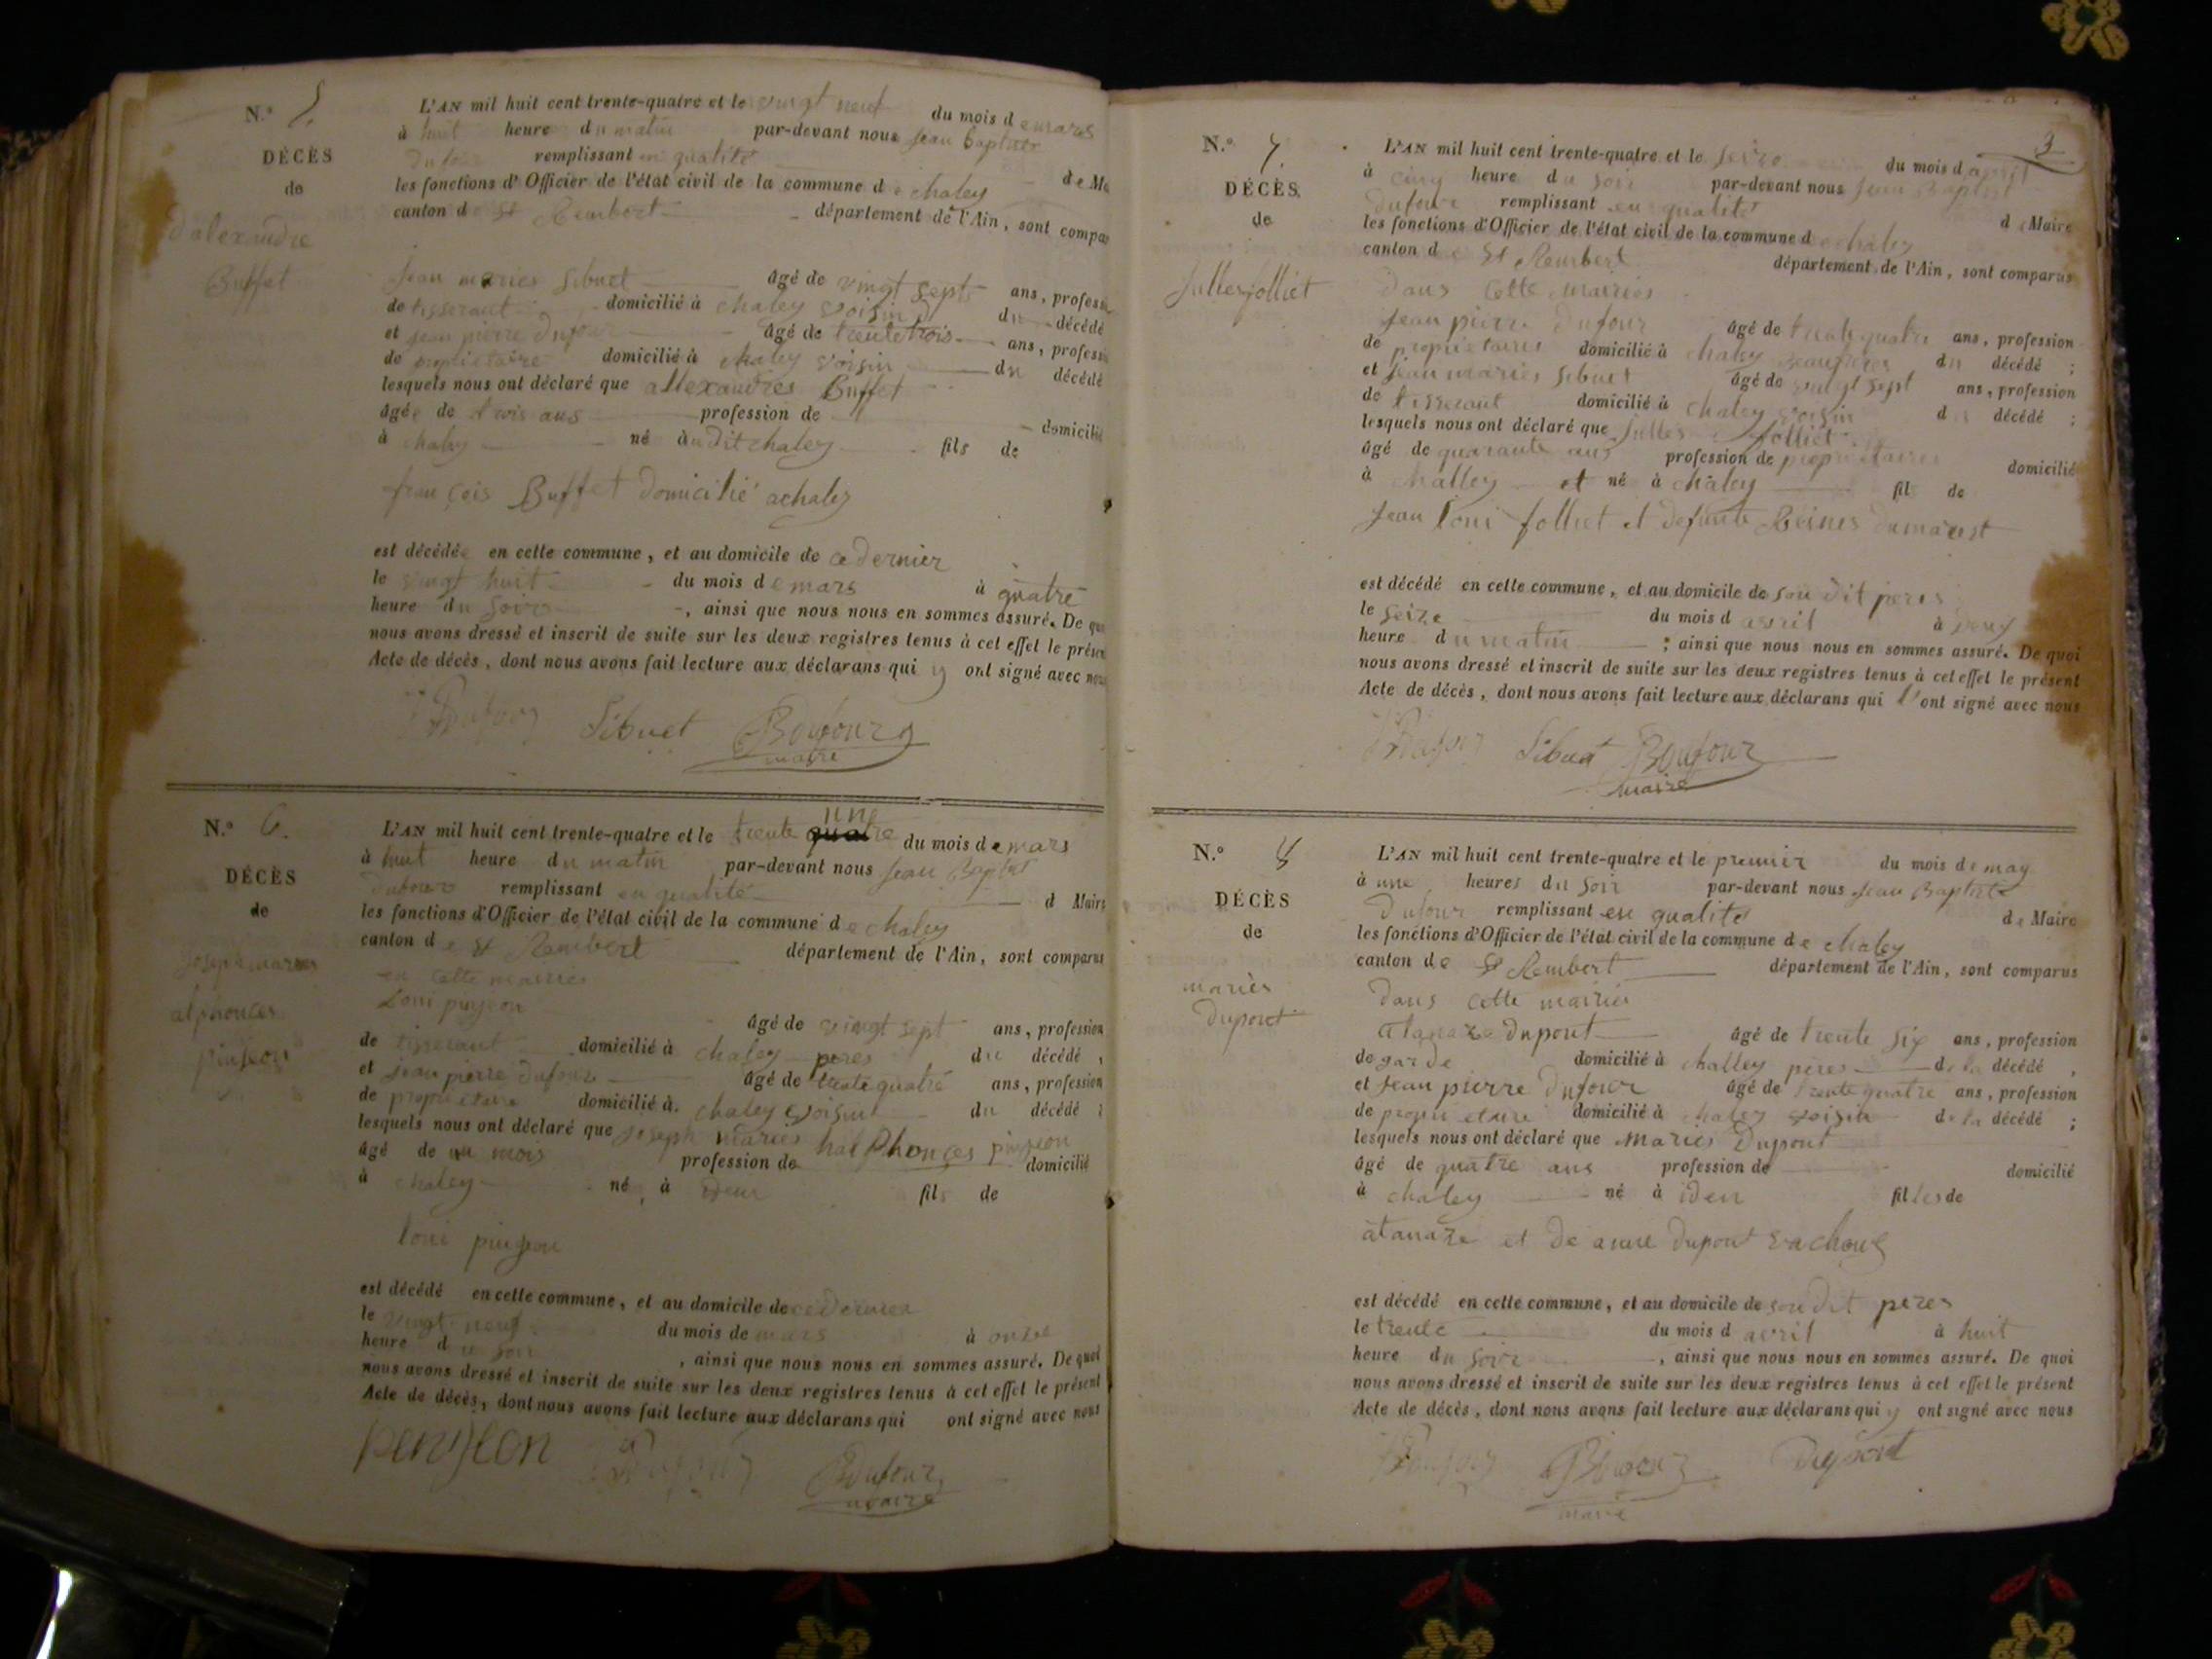 N.° 5.
DÉCÈS
de
d'alexandre
Buffet
L'AN mil huit cent trente-quatre et le vingt neuf du mois de mars
à huit heure du matin par-devant nous jean baptiste
Dufour remplissant en qualité de Ma
les fonctions d'Officier de l'état civil de la commune de chaley
canton de St Rembert département de l'Ain, sont compa
jean maries Sibuet âgé de vingt sept ans, profess
de tisserant domicilié à chaley voisin du décédé
et jean pierre Dufour âgé de trente trois ans, profess
de propriétaire domicilié à chaley voisin du décédé
lesquels nous ont déclaré que allexandres Buffet
âgée de trois ans profession de domicilié
à chaley né àudit chaley fils de
françois Buffet domicilié achaley
est décédée en cette commune, et au domicile de ce dernier
le vingt huit du mois de mars à quatre
heure du soire, ainsi que nous nous en sommes assuré. De quo
nous avons dressé et inscrit de suite sur les deux registres tenus à cet effet le présen
Acte de décès, dont nous avons fait lecture aux déclarans qui y ont signé avec nous
Dufour Sibuet BDufour
maire
N.° 6.
DÉCÈS
de
joseph maries
alphonces
pinjeon
une
L'AN mil huit cent trente-quatre et le trente quatre du mois de mars
à huit heure du matin par-devant nous jean Baptiste
Dufour remplissant en qualité d Maire
les fonctions d'Officier de l'état civil de la commune de chaley
canton de St Rembert département de l'Ain, sont comparus
en cette mairies
Loui pinjeon
âgé de vingt sept ans, profession
de tisserant domicilié à chaley peres du décédé,
et jean pierre dufour âgé de trente quatre ans, profession
de propriétaire domicilié à chaley voisin du décédé ;
lesquels nous ont déclaré que joseph maries halphonces pinjeon
âgé de un mois profession de domicilié
à chaley né à iden fils de
loui pinjeon
est décédé en cette commune, et au domicile de ce dernier
le vingt neuf du mois de mars à onze
heure du soir, ainsi que nous nous en sommes assuré. De quoi
nous avons dressé et inscrit de suite sur les deux registres tenus à cet effet le présent
Acte de décès, dont nous avons fait lecture aux déclarans qui ont signé avec nous
penjeon Dufour BDufour
maire
3
N.° 7.
DÉCÈS.
de
julles jolliet
L'AN mil huit cent trente-quatre et le seize du mois d avril
à cinq heure du soir par-devant nous jean Baptiste
Dufour remplissant en qualité de Maire
les fonctions d'Officier de l'état civil de la commune de chaley
canton de St Rembert département de l'Ain, sont comparus
dans cette mairies
jean pierre Dufour âgé de trente quatre ans, profession
de propriétaires domicilié à chaley beaufrères du décédé ;
et jean maries Sibuet âgé de vingt sept ans, profession
de tisserant domicilié à chaley voisin du décédé ;
lesquels nous ont déclaré que julles jolliet
âgé de quarante ans profession de propriétaires domicilié
à challey et né à chaley fil de
jean loui jolliet et defunte Reines dumarest
est décédé en cette commune, et au domicile de son dit peres
le seize du mois d avril à
heure du matin ; ainsi que nous nous en sommes assuré. De quoi
nous avons dressé et inscrit de suite sur les deux registres tenus à cet effet le présent
Acte de décès, dont nous avons fait lecture aux déclarans qui ont signé avec nous
Dufour Sibuet BDufour
maire
N.°
DÉCÈS
de
maries
Dupont
L'AN mil huit cent trente-quatre et le premier du mois de may
à une heures du soir par-devant nous jean Baptiste
Dufour remplissant en qualité de Maire
les fonctions d'Officier de l'état civil de la commune de chaley
canton de St Rembert département de l'Ain, sont comparus
dans cette mairies
atanaze dupont âgé de trente six ans, profession
de garde domicilié à challey peres de la décédé,
et jean pierre Dufour âgé de trente quatre ans, profession
de propriétaire domicilié à chaley voisin de la décédé ;
lesquels nous ont déclaré que maries Dupont
âgé de quatre ans profession de domicilié
à chaley né à iden filles de
atanaze et de anne dupont vachont
est décédé en cette commune, et au domicile de son dit peres
le trente du mois d avril à huit
heure du soir, ainsi que nous nous en sommes assuré. De quoi
nous avons dressé et inscrit de suite sur les deux registres tenus à cet effet le présent
Acte de décès, dont nous avons fait lecture aux déclarans qui y ont signé avec nous
Dufour BDufour Dupont
maire